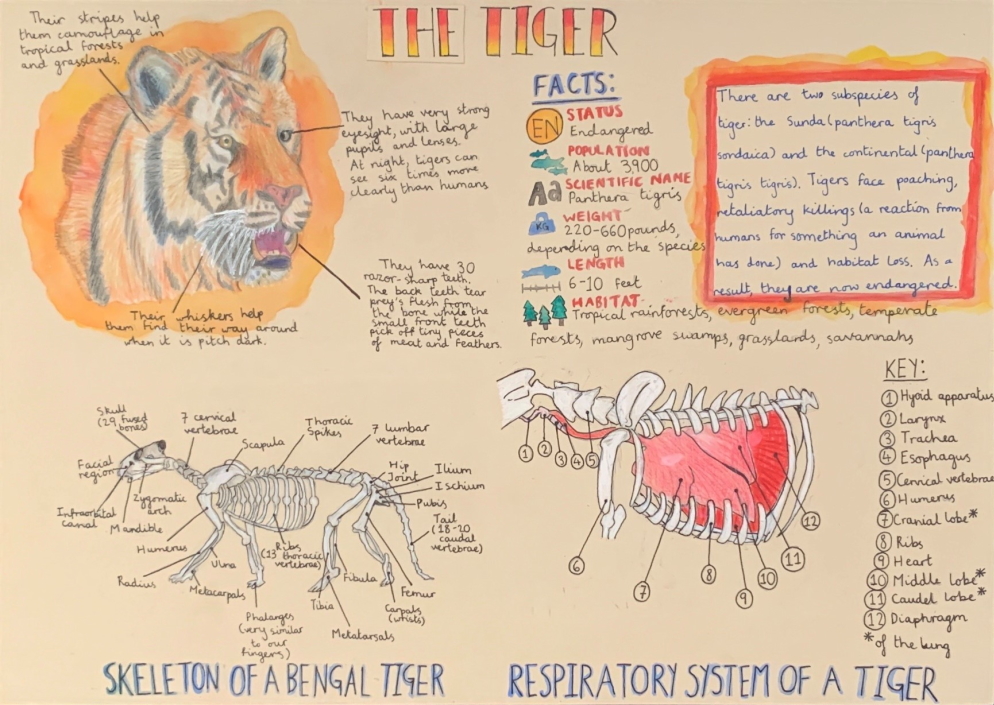 THE TIGER
Their stripes help
them camouflage in
tropical forests
and grasslands.
They have very strong
eyesight, with large
pupils and lenses.
At night, tigers can
see six times more
clearly than humans
They have 30
razor-sharp teeth.
The back teeth tear
prey's flesh from
the bone while the
small front teeth
pick off tiny pieces
of meat and feathers.
Their whiskers help
them find their way around
when it is pitch dark.
FACTS:
EN
STATUS
Endangered
POPULATION
About 3,900
Aa
SCIENTIFIC NAME
Panthera tigris
KG
WEIGHT
220-660 pounds,
depending on the species
LENGTH
6-10 feet
HABITAT
Tropical rainforests, evergreen forests, temperate
forests, mangrove swamps, grasslands, savannahs
There are two subspecies of
tiger: the Sunda (panthera tigris
sondaica) and the continental (panthera
tigris tigris). Tigers face poaching,
retaliatory killings (a reaction from
humans for something an animal
has done) and habitat loss. As a
result, they are now endangered.
Skull
(29 fused
bones)
7 cervical
vertebrae
Scapula
Thoracic
Spikes
7 lumbar
vertebrae
Hip
Joint
Ilium
Ischium
Pubis
Tail
(18-20
caudal
vertebrae)
Facial
region
Zygomatic
arch
Infraorbital
canal
Mandible
Humerus
Radius
Ulna
Metacarpals
Ribs
(13 thoracic
vertebrae)
Phalanges
(very similar
to our
fingers)
Tibia
Fibula
Metatarsals
Carpals
(wrists)
Femur
SKELETON OF A BENGAL TIGER
1 2 3 4 5
6
7
8
9
10
11
12
KEY:
1 Hyoid apparatus
2 Larynx
3 Trachea
4 Esophagus
5 Cervical vertebrae
6 Humerus
7 Cranial lobe*
8 Ribs
9 Heart
10 Middle lobe*
11 Caudel lobe*
12 Diaphragm
*of the lung
RESPIRATORY SYSTEM OF A TIGER